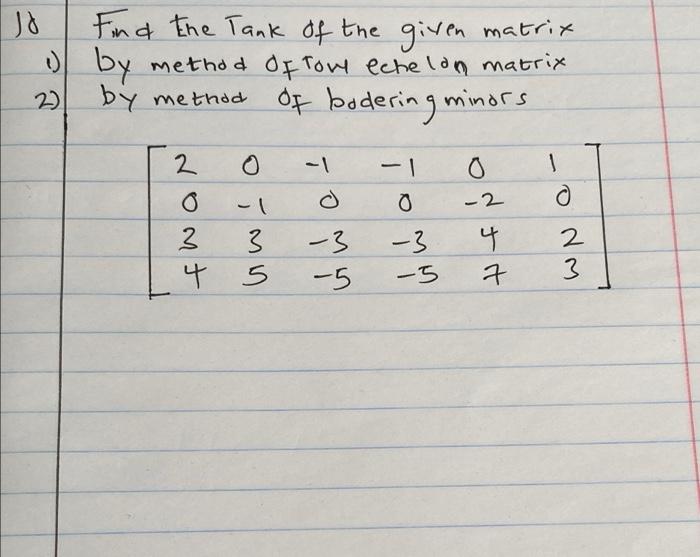 1) Find the Tank of the given matrix
1) by method of row echelon matrix
2) by method of bodering minors
2 0 -1 -1 0 1
0 -1 0 0 -2 0
3 3 -3 -3 4 2
4 5 -5 -5 7 3